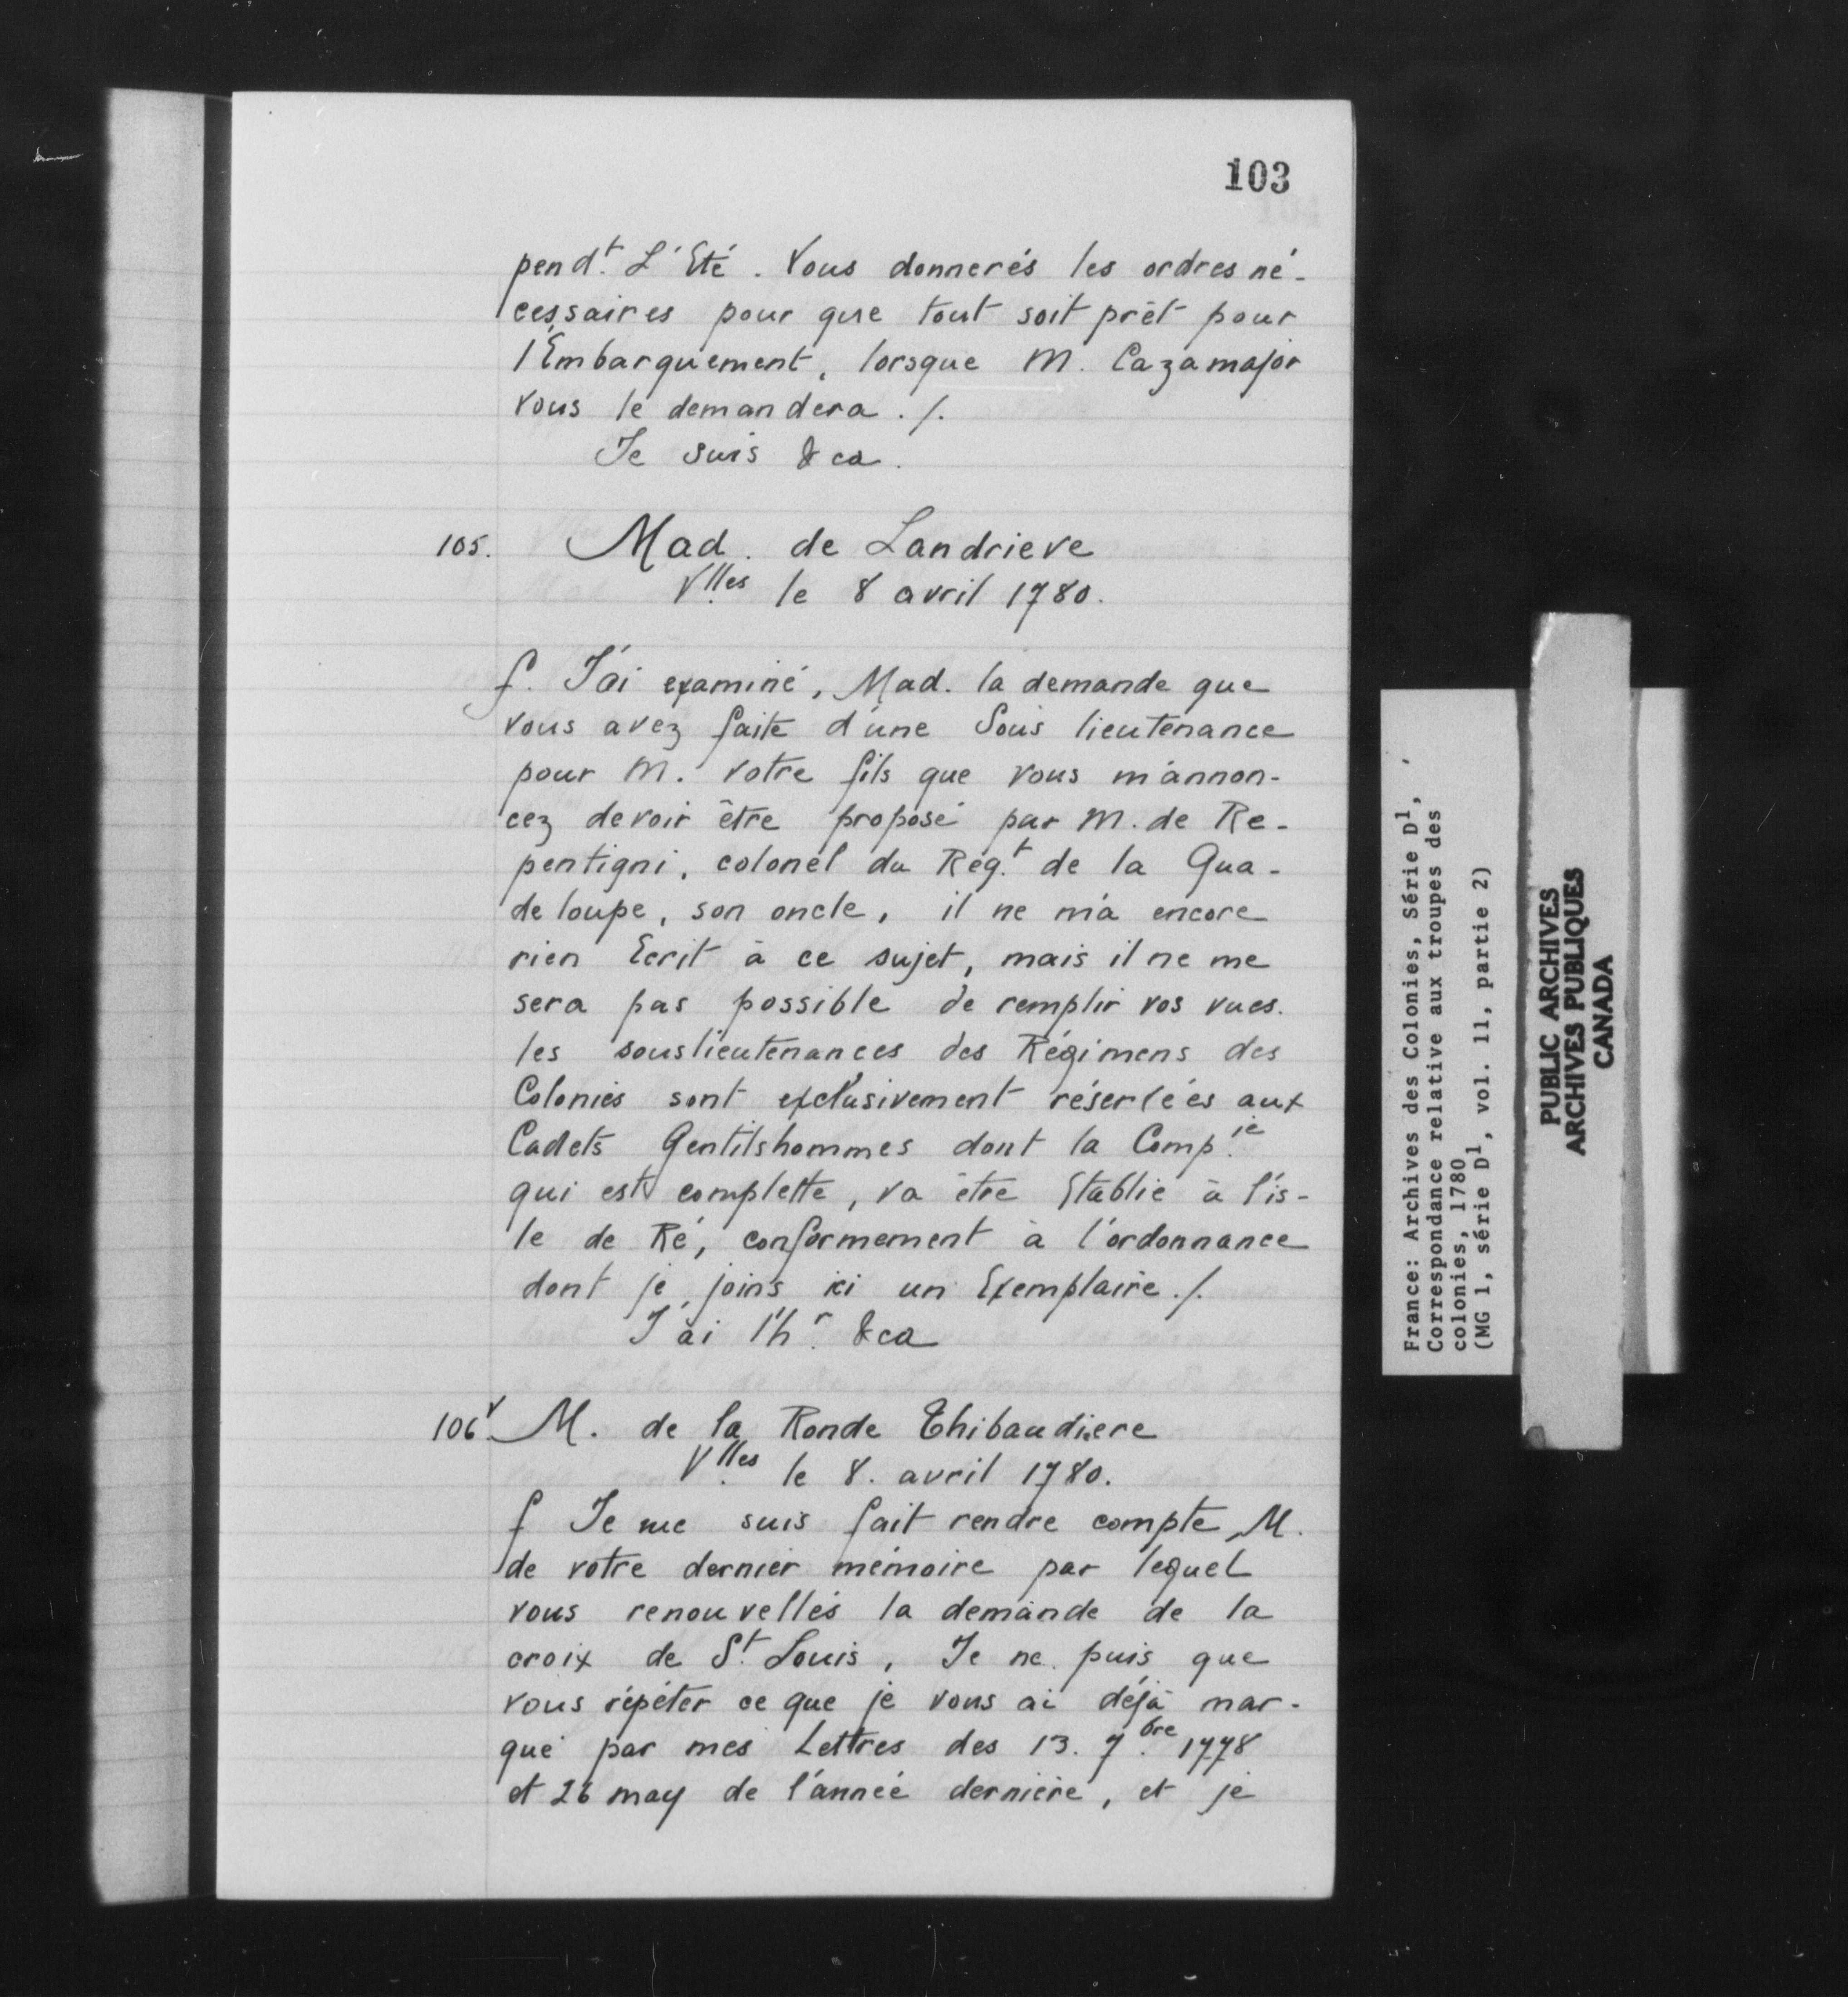 103
pend.t L'Eté. Vous donnerés les ordres né-
cessaires pour que tout soit prêt pour
l'Embarquement, lorsque M. Cazamajor
vous le demandera ./.
Je suis &ca.
105. Mad. de Landrieve
Vlles le 8 avril 1780.
f. J'ai examiné, Mad. la demande que
vous avez faite d'une Sous lieutenance
pour M. votre fils que vous m'annon-
cez devoir être proposé par M. de Re-
pentigni, colonel du Rég.t de la Gua-
deloupe, son oncle, il ne m'a encore
rien Ecrit à ce sujet, mais il ne me
sera pas possible de remplir vos vues.
les souslieutenances des Régimens des
Colonies sont exclusivement réservées aux
Cadets Gentilshommes dont la Comp.ie
qui est complette, va être Etablie à l'is-
le de Ré, conformement à l'ordonnance
dont je joins ici un Exemplaire ./.
J'ai l'h.r &ca
106v. M. de la Ronde Thibaudiere
Vlles le 8. avril 1780.
f Je me suis fait rendre compte, M.
de votre dernier mémoire par lequel
vous renouvellés la demande de la
croix de S.t Louis, Je ne puis que
vous répéter ce que je vous ai déjà mar-
qué par mes Lettres des 13. 7.bre 1778
et 26 may de l'année dernière, et je
France: Archives des Colonies, Série D1,
Correspondance relative aux troupes des
colonies, 1780
(MG 1, série D1, vol. 11, partie 2)
PUBLIC ARCHIVES
ARCHIVES PUBLIQUES
CANADA